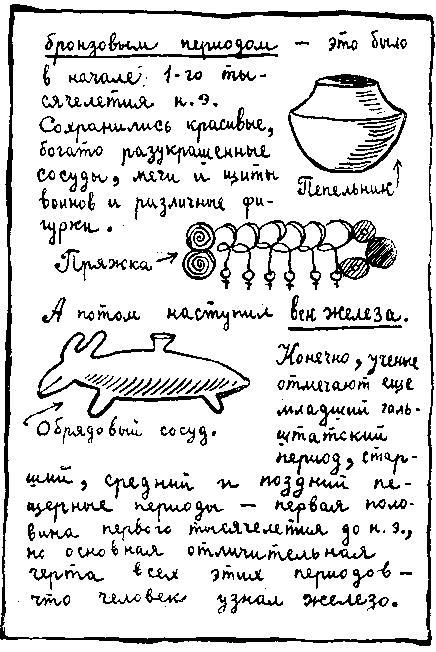 бронзовым периодом – это было
в начале 1-го ты-
сячелетия н.э.
Сохранились красивые,
богато разукрашенные
сосуды, мечи и щиты
воинов и различные фи-
гурки.
Пепельник
Пряжка
А потом наступил век железа.
Обрядовый сосуд.
Конечно, ученые
отмечают еще
младший галь-
штатский
период, стар-
ший, средний и поздний пе-
щерные периоды – первая поло-
вина первого тысячелетия до н.э.,
но основная отличительная
черта всех этих периодов –
что человек узнал железо.